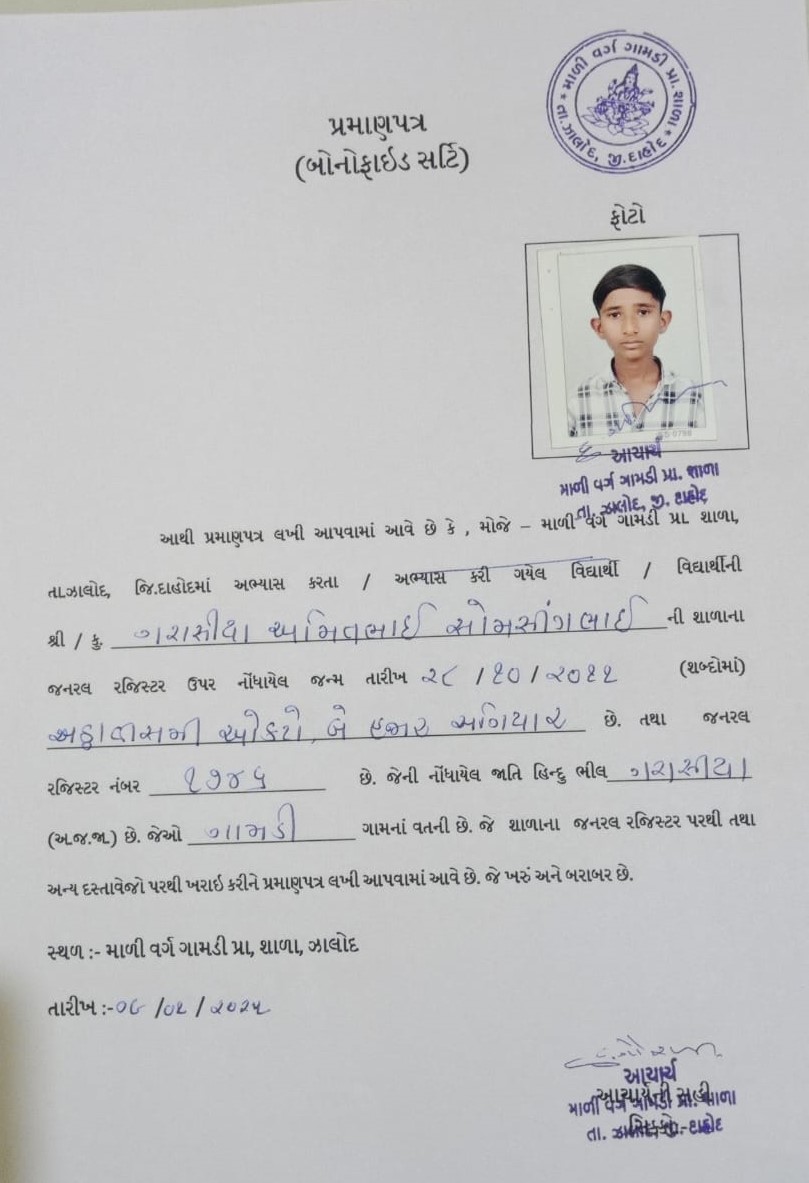 માળી વર્ગ ગામડી પ્રા. શાળા * તા. ઝાલોદ, જી. દાહોદ *
પ્રમાણપત્ર
(બોનોફાઇડ સર્ટિ)
ફોટો
આચાર્ય
માળી વર્ગ ગામડી પ્રા. શાળા
તા. ઝાલોદ, જી. દાહોદ
આથી પ્રમાણપત્ર લખી આપવામાં આવે છે કે , મોજે – માળી વર્ગ ગામડી પ્રા. શાળા,
તા.ઝાલોદ, જિ.દાહોદમાં અભ્યાસ કરતા / અભ્યાસ કરી ગયેલ વિદ્યાર્થી / વિદ્યાર્થીની
શ્રી / કુ. ગરાસીયા અમિતભાઈ સોમસીંગભાઈ ની શાળાના
જનરલ રજિસ્ટર ઉપર નોંધાયેલ જન્મ તારીખ ૨૮ /૧૦ / ૨૦૧૧ (શબ્દોમાં)
અઠ્ઠાવીસમી ઓકટો, બે હજાર અગિયાર છે. તથા જનરલ
રજિસ્ટર નંબર ૧૭૪૬ છે. જેની નોંધાયેલ જાતિ હિન્દુ ભીલ ગરાસીયા
(અ.જ.જા.) છે. જેઓ ગામડી ગામનાં વતની છે. જે શાળાના જનરલ રજિસ્ટર પરથી તથા
અન્ય દસ્તાવેજો પરથી ખરાઇ કરીને પ્રમાણપત્ર લખી આપવામાં આવે છે. જે ખરું અને બરાબર છે.
સ્થળ :- માળી વર્ગ ગામડી પ્રા, શાળા, ઝાલોદ
તારીખ :-૦૬ /૦૧ / ૨૦૨૫
આચાર્ય
આચાર્યની સહી
માળી વર્ગ ગામડી પ્રા. શાળા
સિક્કો
તા. ઝાલોદ, જી. દાહોદ